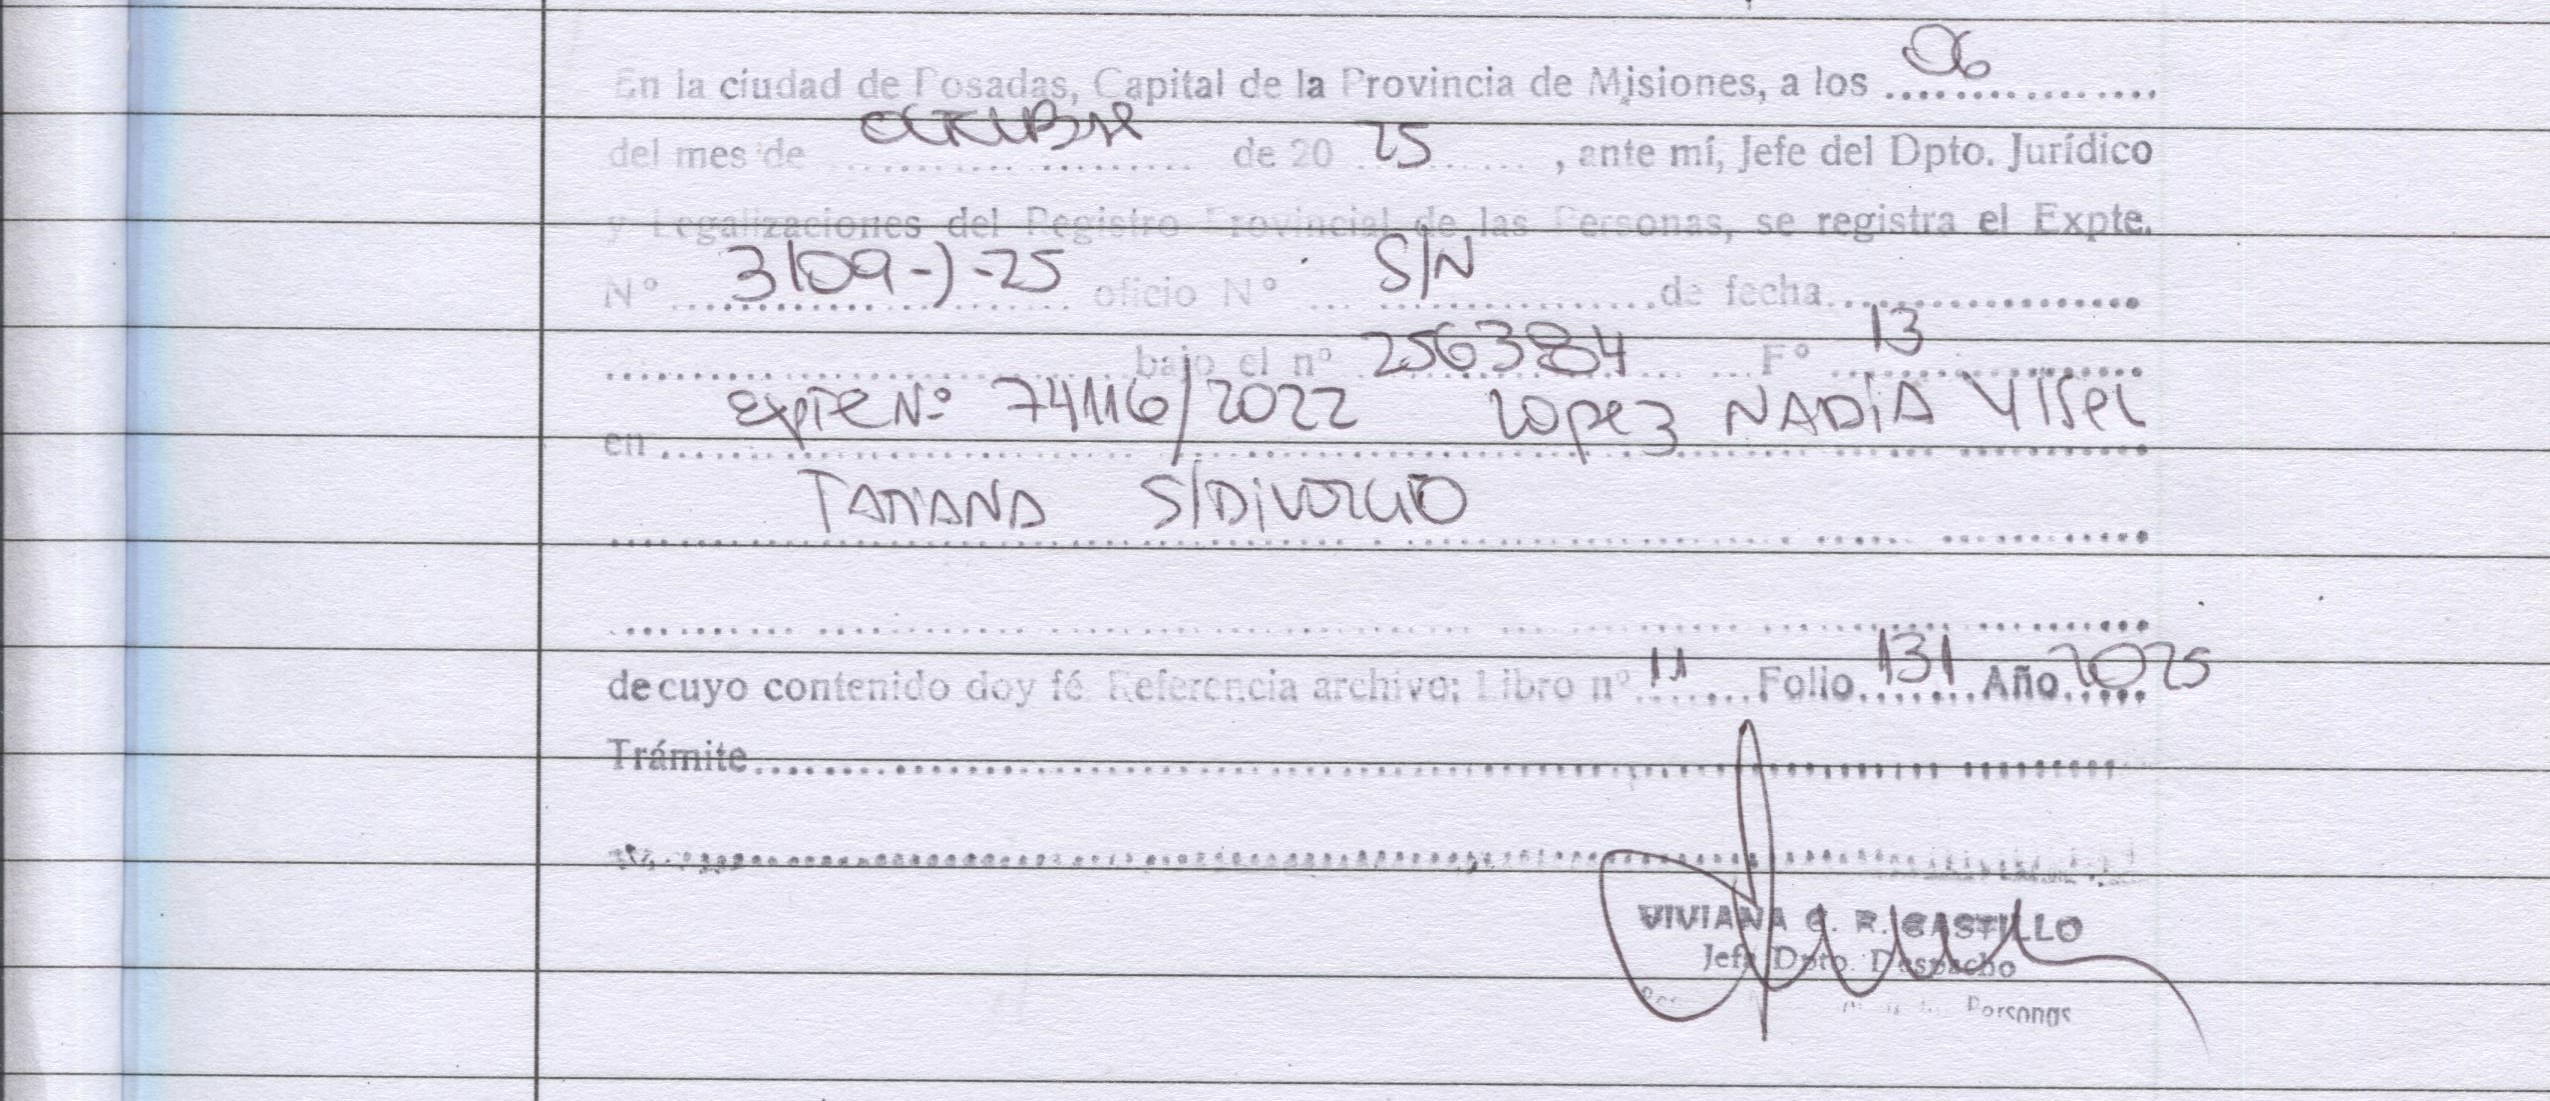 En la ciudad de Posadas, Capital de la Provincia de Misiones, a los 06
del mes de octubre de 20 25, ante mí, Jefe del Dpto. Jurídico
y Legalizaciones del Registro Provincial de las Personas, se registra el Expte.
N° 3109-J-25 oficio N° S/N de fecha
bajo el n° 256384 F° 13
en Expte N° 74116/2022 Lopez NADIA YISEL
TATIANA S/DIVORCIO
de cuyo contenido doy fé Referencia archivo: Libro n° 11 Folio 131 Año 2025
Trámite
VIVIANA C. R. CASTILLO
Jefe Dpto. Despacho
Personas